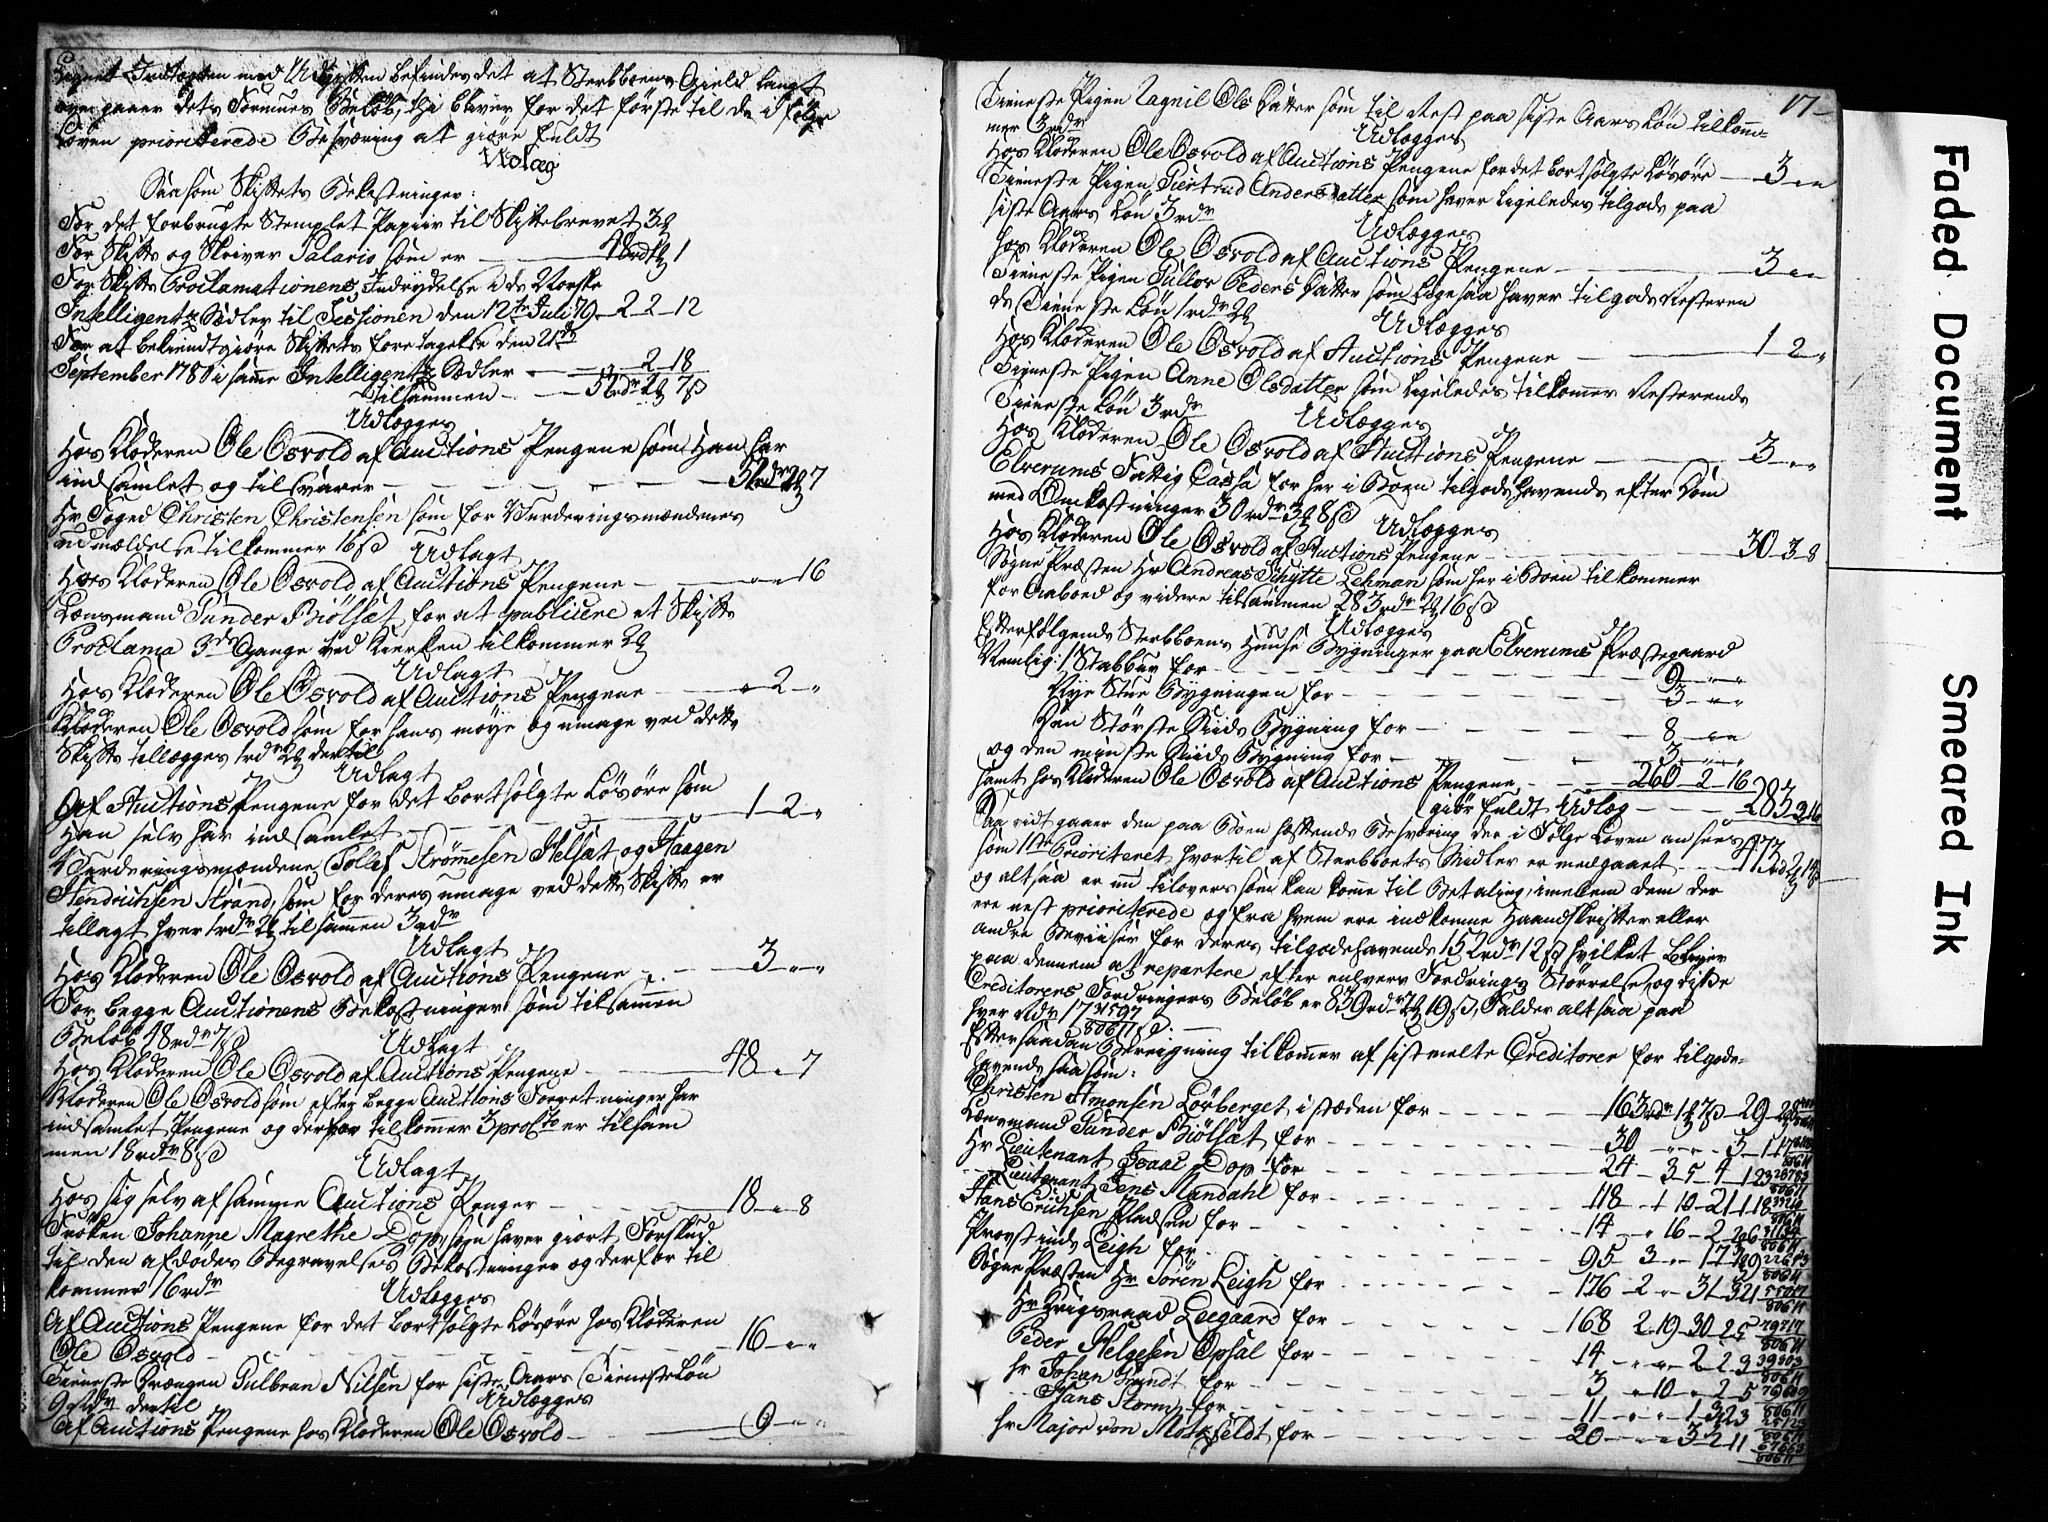 lignet Indtægten med Udgiften befindes det at Sterbboens Gield langt
over gaaer dets Formues Beløb, thi bliver for det første til de i følge
Loven prioriterede Besværing at giøre fuldt
Udlæg
Saasom Skiftets Bekostninger:
For det forbrugte Stemplet Papiir til Skiftebrevet 3
For Skifte og Skriver Salario som er 48rd 1
For Skifte Proclamationens Indrydelse i de Norske
Intelligentz Sædler til Sessionen den 12te Juli 79 2 2 12
For at bekiendtgiøre Skiftets foretagelse den 21de
September 1780 i samme Intelligentz Sædler 2 18
tilsammen 52rdr 2 7ß
Udlægges
Hos Kloderen Ole Osvold af Auctions Pengene som Han har
indsamlet og tilsvarer 52rdr 2 7
Hr Foged Christen Christensen som for Vurderingsmændenes
udmældelse tilkommer 16ß Udlagt
Hos Kloderen Ole Osvold af Auctions Pengene 16
Lensmand Gunder Biølset for at publicere et Skifte
Proclama 3de Gange ved Kierken tilkommer 2
Udlagt
Hos Kloderen Ole Osvold af Auctions Pengene 2
Kloderen Ole Osvold som for hans møye og umage ved dette
Skifte tillægges 1rdr 2 dertil
Udlagt
Af Auctions Pengene for det bortsolgte Løsøre som
Han selv har indsamlet 1 2
4 Vurderingsmændene Tollef Strømmesen Helset og Haagen
Hendrichsen Strand, som for deres umage ved dette Skifte er
tillagt hver 1rdr 2 tilsammen 3rdr
Udlagt
Hos Kloderen Ole Osvold af Auctions Pengene 3
For begge Auctionens Bekostninger som tilsammen
Beløb 48rdr 7ß Udlagt
Hos Kloderen Ole Osvold af Auctions Pengene 48 7
Kloderen Ole Osvold som efter begge Auctions Forretninger har
indsamlet Pengene og derfor tilkommer 3 proCto er tilsam
men 18rdr 8ß
Udlagt
Hos sig selv af samme Auctions Penger 18 8
Frøken Johanne Magrethe Dop, som haver giort Forskud
til den afdødes Begravelses Bekostninger og derfor til
kommer 16rdr Udlægges
Af Auctions Pengene for det bortsolgte Løsøre hos Kloderen
Ole Osvold 16
Tieneste Drængen Gulbran Nilsen for siste Aars Tieneste Løn
9rdr dertil Udlægges
Af Auctions Pengene hos Kloderen Ole Osvold 9
17
Tieneste Pigen Ragnil Ols Datter som til Rest paa siste Aars Løn tilkom=
mer 3rdr Udlægges
Hos Kloderen Ole Osvold af Auctions Pengene for det bortsolgte Løsøre 3
Tieneste Pigen Giertrud Andersdatter som haver ligeledes tilgode paa
siste Aars Løn 3rdr Udlægges
hos Kloderen Ole Osvold af Auctions Pengene 3
Tieneste Pigen Gullov Peders Datter som ligesaa haver tilgode Resteren
de Tieneste Løn 1rdr 2 Udlægges
Hos Kloderen Ole Osvold af Auctions Pengene 1 2
Tieneste Pigen Anne Olsdatter som ligeledes tilkommer Resterende
Tieneste Løn 3rdr Udlægges
Hos Kloderen Ole Osvold af Auctions Pengene 3
Elverums Fattig Cassa for her i Boen tilgodehavende efter Dom
med Omkostninger 30rdr 3 8ß Udlægges
Hos Kloderen Ole Osvold af Auctions Pengene 30 3 8
Sogne Præsten Hr Andreas Schytte Lehman som her i Boen tilkommer
for Aaboed og videre tilsammen 283rdr 2 16ß
Udlægges
Efterfølgende Sterbboens Huuse Bygninger paa Elverums Præstegaard
Nemlig: 1 Stabbur for 9
Nye Stue Bygningen for 3
Den Største Qviids Bygning for 8
og den minste Qviids Bygning for 3
samt hos Kloderen Ole Osvold af Auctions Pengene 260 2 16
giør fuldt Udlæg 283 2 16
Saa vidt gaaer den paa Boen hæftende Besværing der i Følge Loven ansees
som 1te Prioriteret hvortil af Sterbboets Midler er medgaaet
og altsaa er nu tilovers som kan komme til Betaling imellem dem der
ere nest prioriterede og fra hvem ere indkomne Haandskrifter eller
andre Beviiser for deres tilgodehavende 152rdr 12ß hvilket bliver
paa dennem at repartere efter enhvers Fordrings Størrelse, og disse
Creditorens Fordringers Beløb er 839rdr 2 19ß, Falder altsaa paa
hver Rdr 17 31597/80611 ß
Efter saadan Beregning tilkommer af sistmelte Creditorer for tilgode=
havende saasom:
Christen Amonsen Lørberget i steden for 163rdr 1 7ß 29
Lænsmand Gunder Biølset for 30 5 1 17
Hr Lieutenant Isaac Dop for 24 3 5 4 1 23
Lieutenant Jens Mandahl for 118 1 10 21 1 18
Hans Erichsen Pladsen for 14 16 2 2 6
Provstinde Leigh for 95 3 17 1 9
Sogne Præsten Hr Søren Leigh for 176 2 31 3 21
Hr Krigsraad Leegaard for 168 2 19 30 2 5
Peder Helgesen Opsal for 14 2 2 3
hr Johan Grundt for 3 10 2 5
Hans Storm for 11 1 3 23
hr Major von Motzfeldt for 20 3 2 11
Faded Document
Smeared Ink